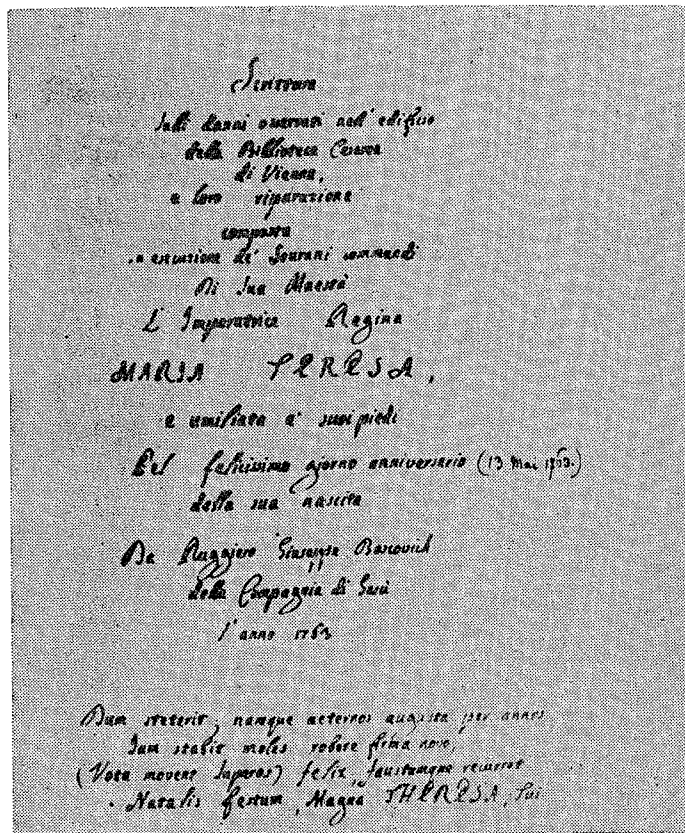 Scrittura
sulli danni osservati nell' edificio
della Biblioteca Cesarea
di Vienna,
e loro riparazione
composta
in esecuzione de' Sovrani commandi
Di Sua Maestà
L' Imperatrice Regina
MARIA TERESA,
e umiliata a' suoi piedi
Nel felicissimo giorno anniversario (13 Mai 1763.)
della sua nascita
Da Ruggiero Giuseppe Boscovich
della Compagnia di Gesù
l' anno 1763
Dum steterit, namque aeternos augusta per annos
Jam stabit moles robore firma novo,
(Vota movent Superos) felix, faustumque recurrat
Natalis festum, Magna THERESA, Tui